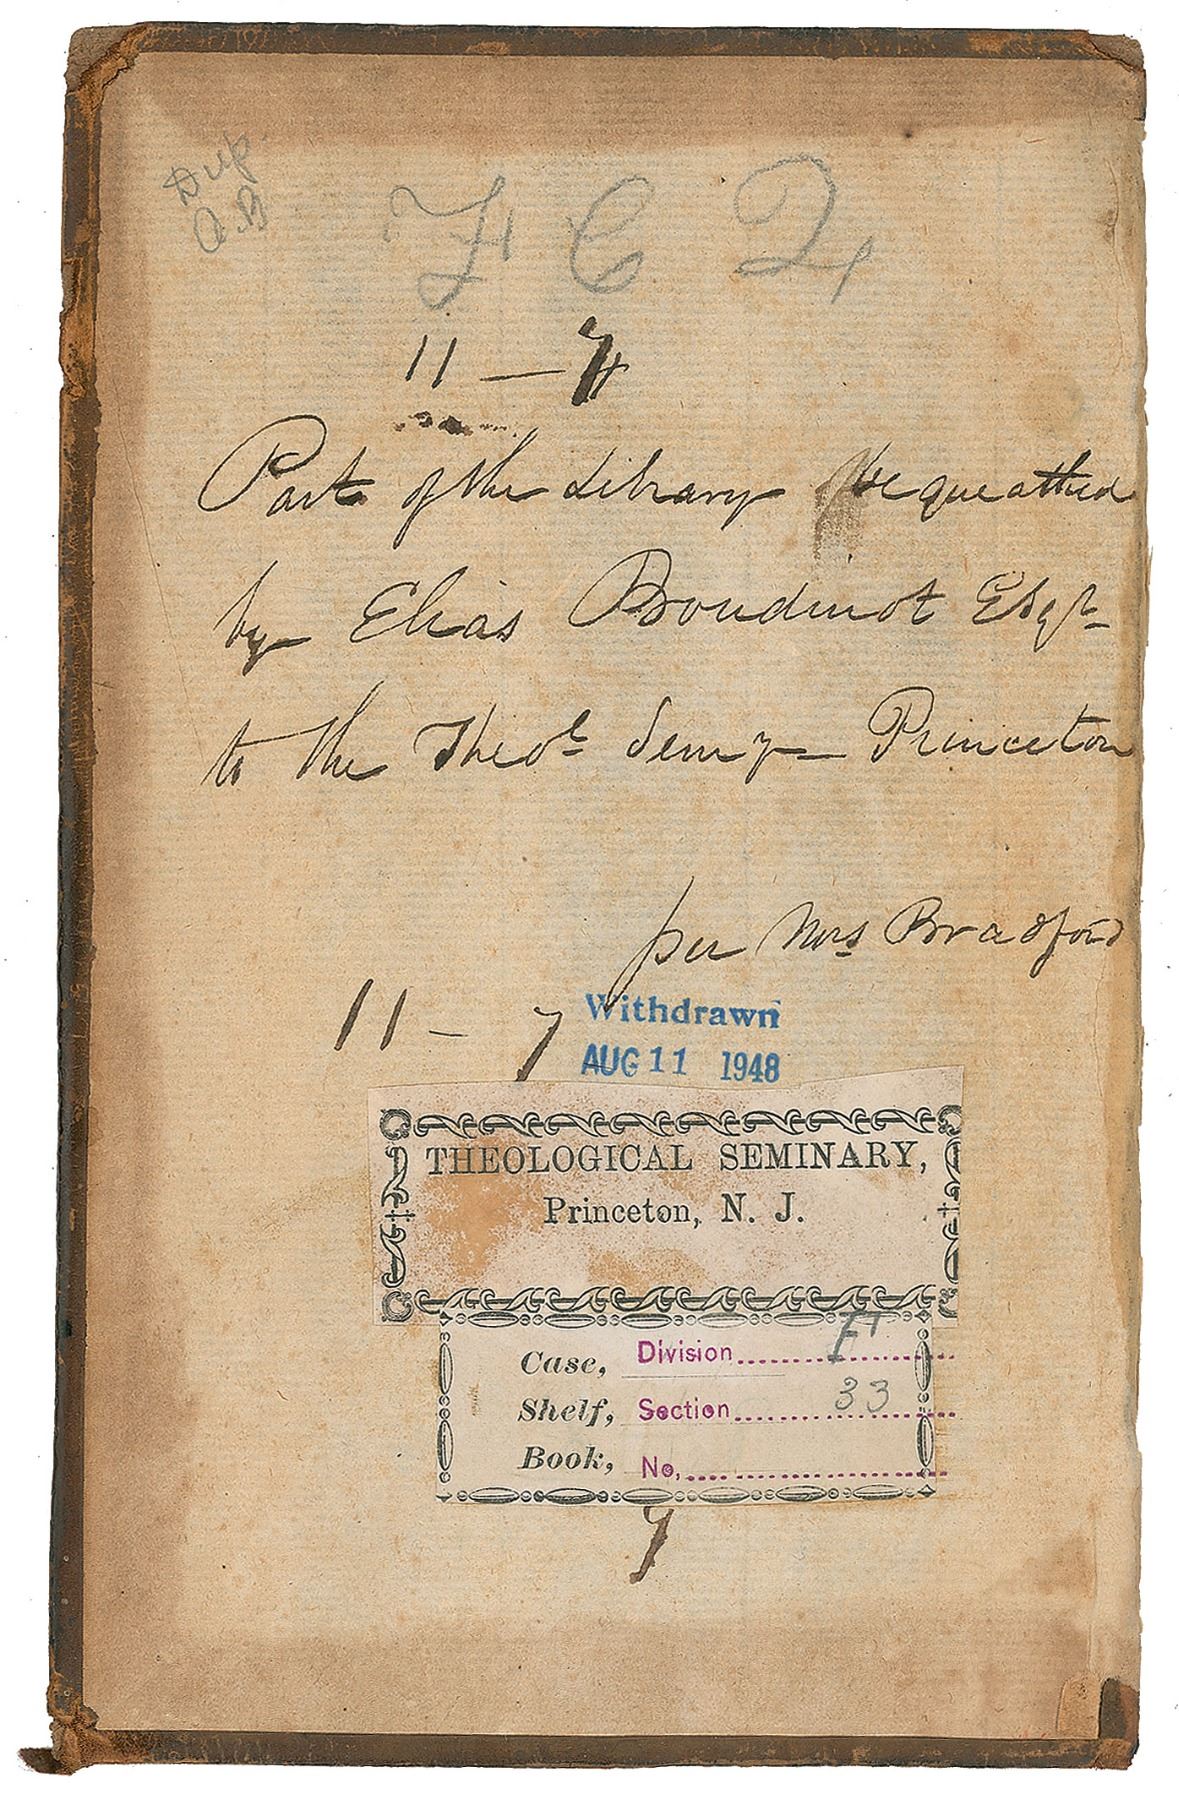 Dup.
A.B
F C 2,
11 — 7
Part of the Library Bequeathed
by Elias Boudinot Esqr
to the Theol Semy Princeton
per Mrs Bradford
11 — 7
Withdrawn
AUG 11 1948
THEOLOGICAL SEMINARY,
Princeton, N. J.
Case, Division F
Shelf, Section 33
Book, No,
7